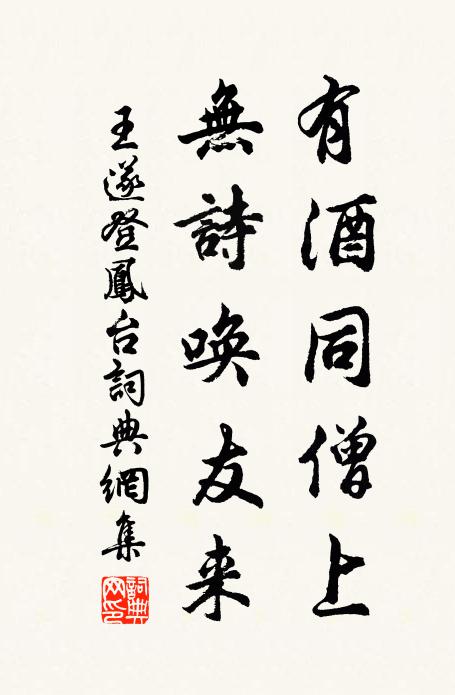 有酒同僧上
無詩唤友来
王遂登鳳台詞典網集
詞典網印